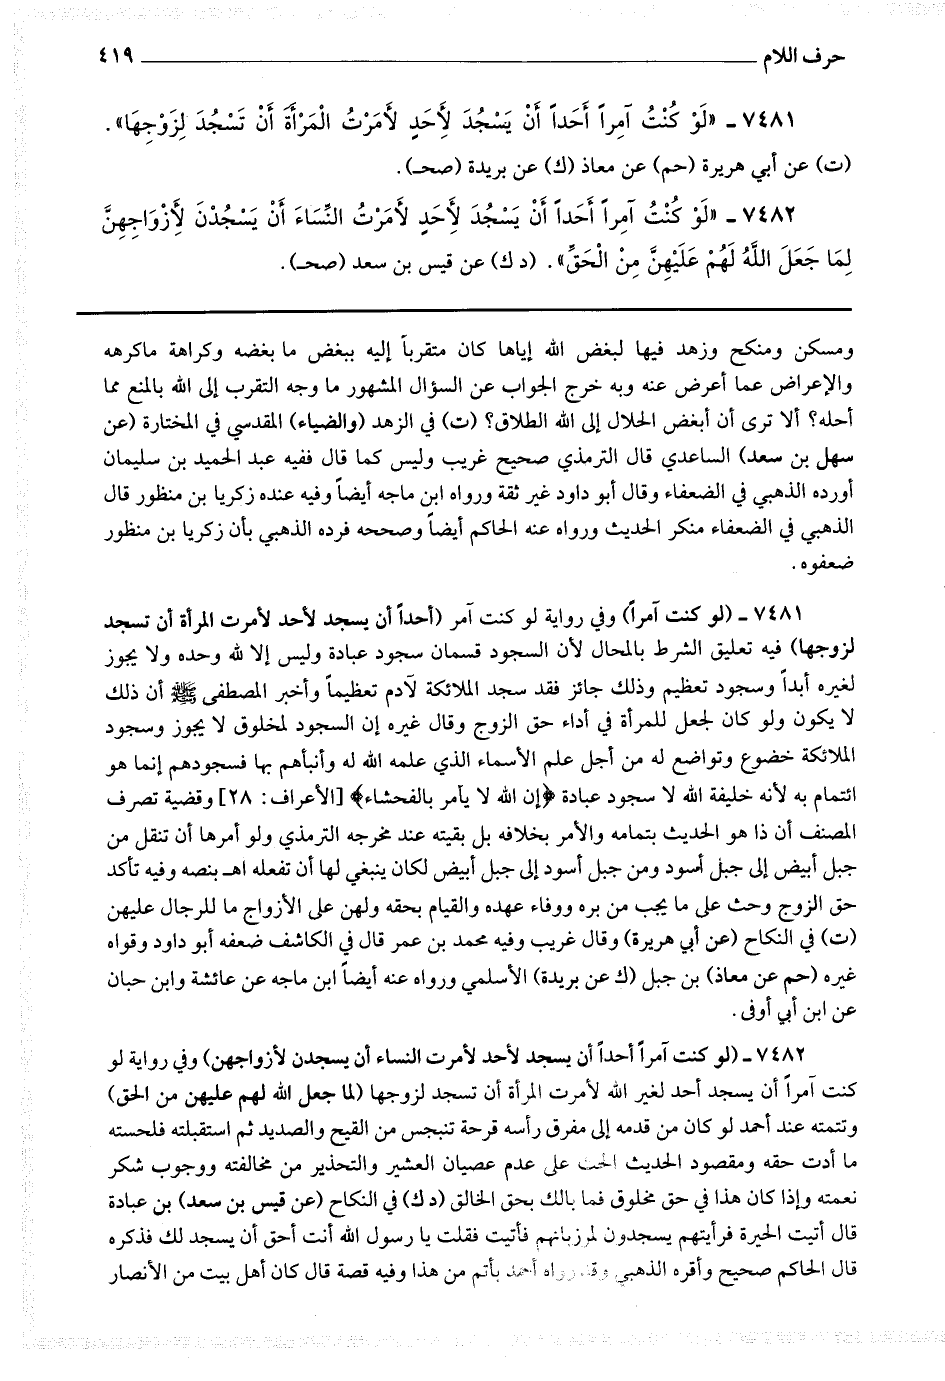 حرف اللام ٤١٩
٧٤٨١ ـ «لَوْ كُنْتُ آمِراً أَحَداً أَنْ يَسْجُدَ لِأَحَدٍ لأَمَرْتُ الْمَرْأَةَ أَنْ تَسْجُدَ لِزَوْجِهَا».
(ت) عن أبي هريرة (حم) عن معاذ (ك) عن بريدة (صحـ).
٧٤٨٢ ـ «لَوْ كُنْتُ آمِراً أَحَداً أَنْ يَسْجُدَ لِأَحَدٍ لأَمَرْتُ النِّسَاءَ أَنْ يَسْجُدْنَ لِأَزْوَاجِهِنَّ
لِمَا جَعَلَ اللَّهُ لَهُمْ عَلَيْهِنَّ مِنْ الْحَقِّ». (د ك) عن قيس بن سعد (صحـ).
ومسكن ومنكح وزهد فيها لبغض الله إياها كان متقرباً إليه ببغض ما بغضه وكراهة ماكرهه
والإعراض عما أعرض عنه وبه خرج الجواب عن السؤال المشهور ما وجه التقرب إلى الله بالمنع مما
أحله؟ ألا ترى أن أبغض الحلال إلى الله الطلاق؟ (ت) في الزهد (والضياء) المقدسي في المختارة (عن
سهل بن سعد) الساعدي قال الترمذي صحيح غريب وليس كما قال ففيه عبد الحميد بن سليمان
أورده الذهبي في الضعفاء وقال أبو داود غير ثقة ورواه ابن ماجه أيضاً وفيه عنده زكريا بن منظور قال
الذهبي في الضعفاء منكر الحديث ورواه عنه الحاكم أيضاً وصححه فرده الذهبي بأن زكريا بن منظور
ضعفوه.
٧٤٨١ ـ (لو كنت آمراً) وفي رواية لو كنت آمر (أحداً أن يسجد لأحد لأمرت المرأة أن تسجد
لزوجها) فيه تعليق الشرط بالمحال لأن السجود قسمان سجود عبادة وليس إلا لله وحده ولا يجوز
لغيره أبداً وسجود تعظيم وذلك جائز فقد سجد الملائكة لآدم تعظيماً وأخبر المصطفى ﷺ أن ذلك
لا يكون ولو كان لجعل للمرأة في أداء حق الزوج وقال غيره إن السجود لمخلوق لا يجوز وسجود
الملائكة خضوع وتواضع له من أجل علم الأسماء الذي علمه الله له وأنبأهم بها فسجودهم إنما هو
ائتمام به لأنه خليفة الله لا سجود عبادة ﴿إن الله لا يأمر بالفحشاء﴾ [الأعراف: ٢٨] وقضية تصرف
المصنف أن ذا هو الحديث بتمامه والأمر بخلافه بل بقيته عند مخرجه الترمذي ولو أمرها أن تنقل من
جبل أبيض إلى جبل أسود ومن جبل أسود إلى جبل أبيض لكان ينبغي لها أن تفعله اهـ بنصه وفيه تأكد
حق الزوج وحث على ما يجب من بره ووفاء عهده والقيام بحقه ولهن على الأزواج ما للرجال عليهن
(ت) في النكاح (عن أبي هريرة) وقال غريب وفيه محمد بن عمر قال في الكاشف ضعفه أبو داود وقواه
غيره (حم عن معاذ) بن جبل (ك عن بريدة) الأسلمي ورواه عنه أيضاً ابن ماجه عن عائشة وابن حبان
عن ابن أبي أوفى.
٧٤٨٢ ـ (لو كنت آمراً أحداً أن يسجد لأحد لأمرت النساء أن يسجدن لأزواجهن) وفي رواية لو
كنت آمراً أن يسجد أحد لغير الله لأمرت المرأة أن تسجد لزوجها (لما جعل الله لهم عليهن من الحق)
وتتمته عند أحمد لو كان من قدمه إلى مفرق رأسه قرحة تنبجس من القيح والصديد ثم استقبلته فلحسته
ما أدت حقه ومقصود الحديث الحث على عدم عصيان العشير والتحذير من مخالفته ووجوب شكر
نعمته وإذا كان هذا في حق مخلوق فما بالك بحق الخالق (د ك) في النكاح (عن قيس بن سعد) بن عبادة
قال أتيت الحيرة فرأيتهم يسجدون لمرزبانهم فأتيت فقلت يا رسول الله أنت أحق أن يسجد لك فذكره
قال الحاكم صحيح وأقره الذهبي وقد رواه أحمد بأتم من هذا وفيه قصة قال كان أهل بيت من الأنصار